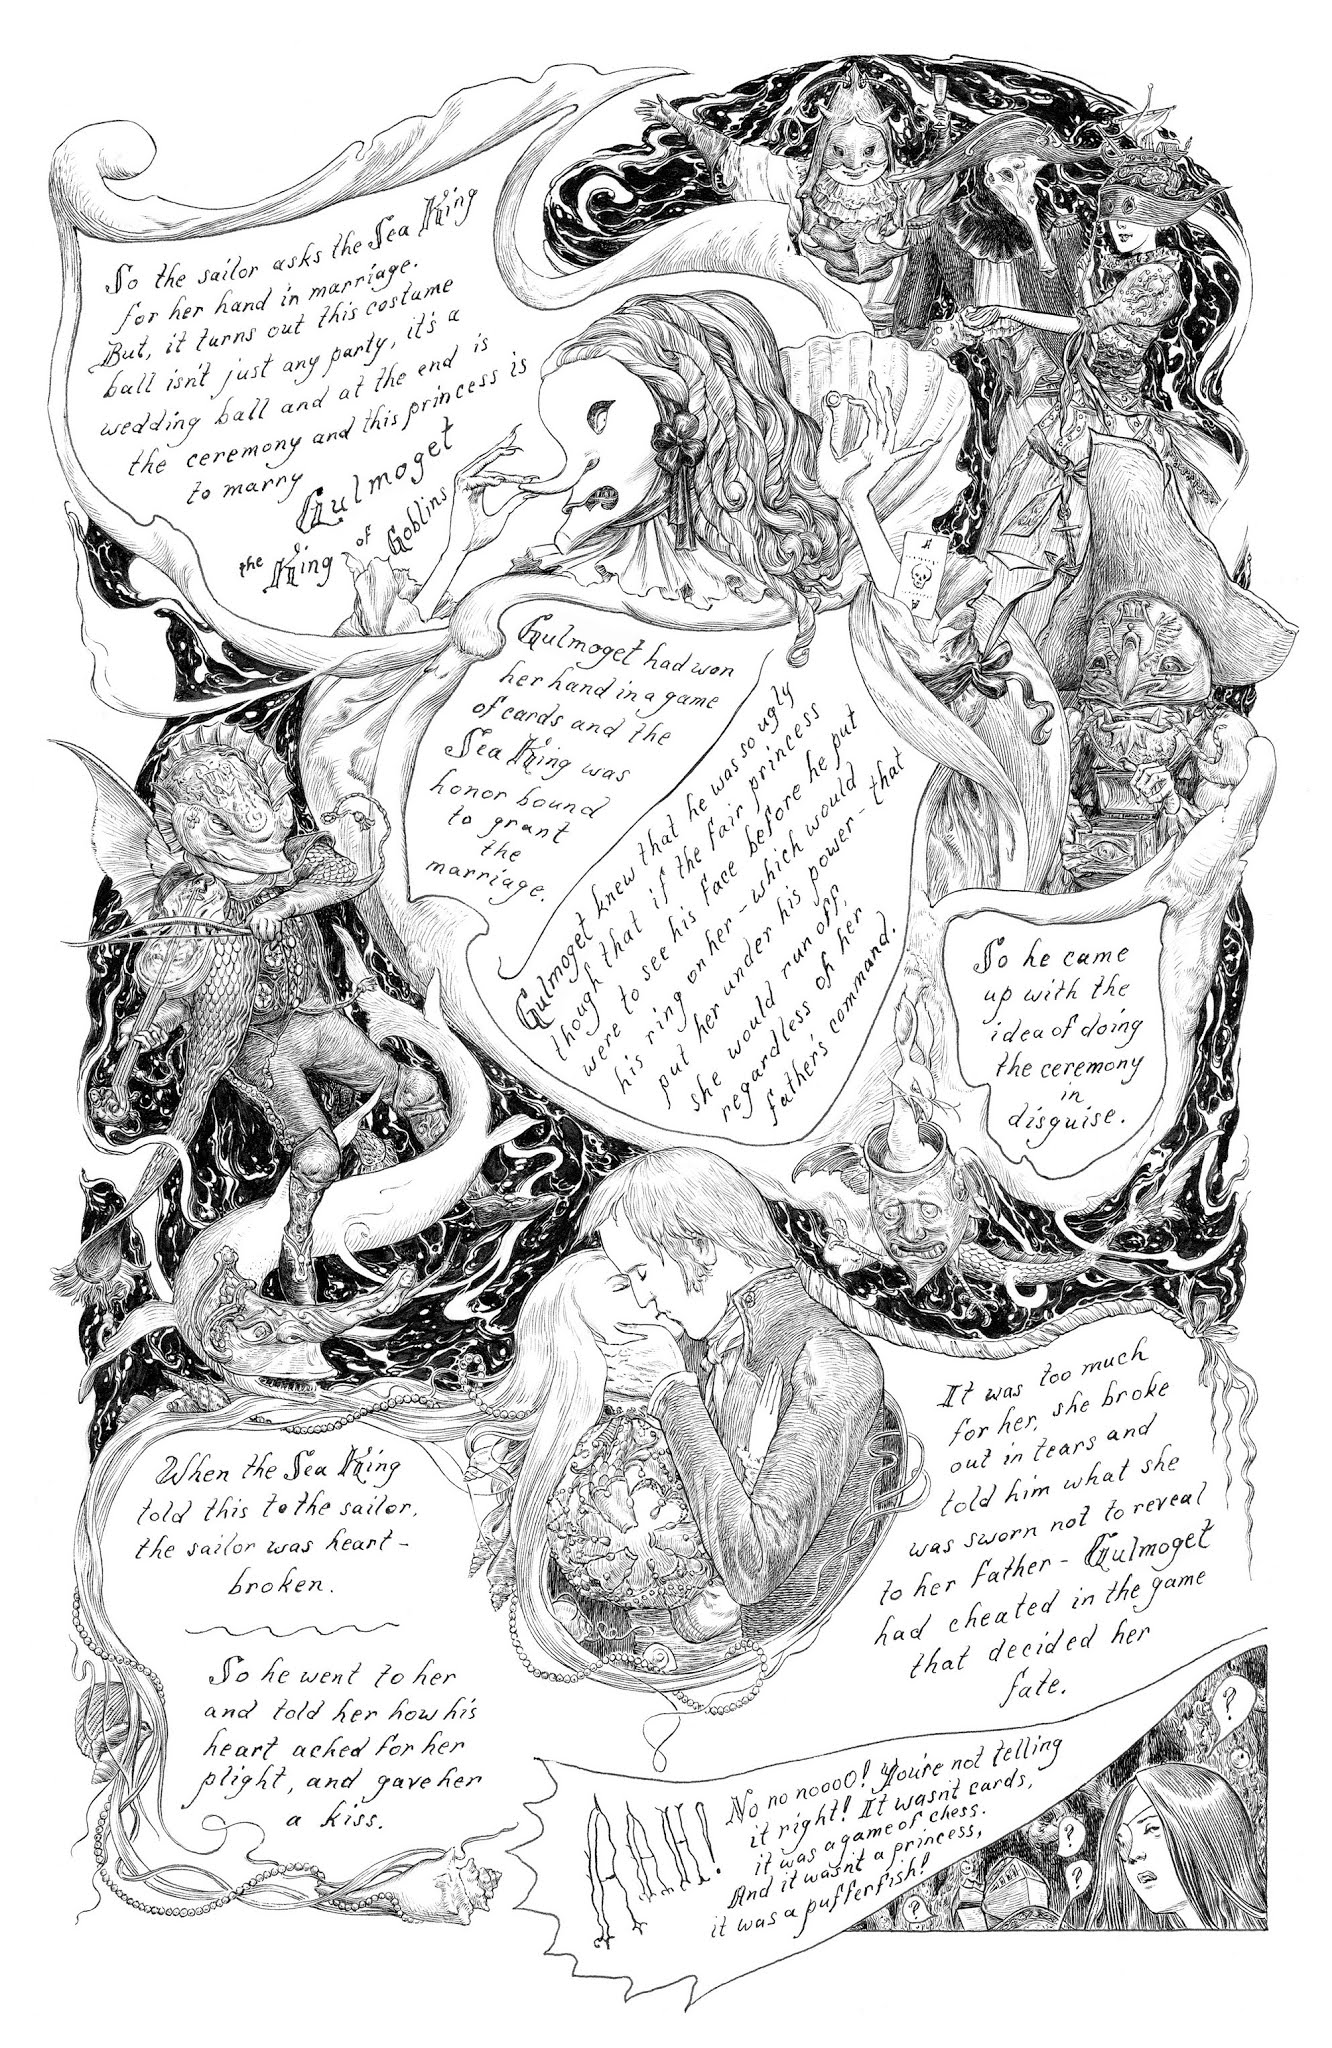 So the sailor asks the Sea King
for her hand in marriage.
But, it turns out this costume
ball isn't just any party, it's a
wedding ball and at the end is
the ceremony and this princess is
to marry
Gulmoget
the King of Goblins
Gulmoget had won
her hand in a game
of cards and the
Sea King was
honor bound
to grant
the
marriage.
Gulmoget knew that he was so ugly
though that if the fair princess
were to see his face before he put
his ring on her - which would
put her under his power - that
she would run off,
regardless of her
father's command.
So he came
up with the
idea of doing
the ceremony
in
disguise.
When the Sea King
told this to the sailor,
the sailor was heart-
broken.
So he went to her
and told her how his
heart ached for her
plight, and gave her
a kiss.
It was too much
for her, she broke
out in tears and
told him what she
was sworn not to reveal
to her father - Gulmoget
had cheated in the game
that decided her
fate.
PAH!
No no nooo0! You're not telling
it right! It wasn't cards,
it was a game of chess.
And it wasn't a princess,
it was a pufferfish!
?
?
?
?